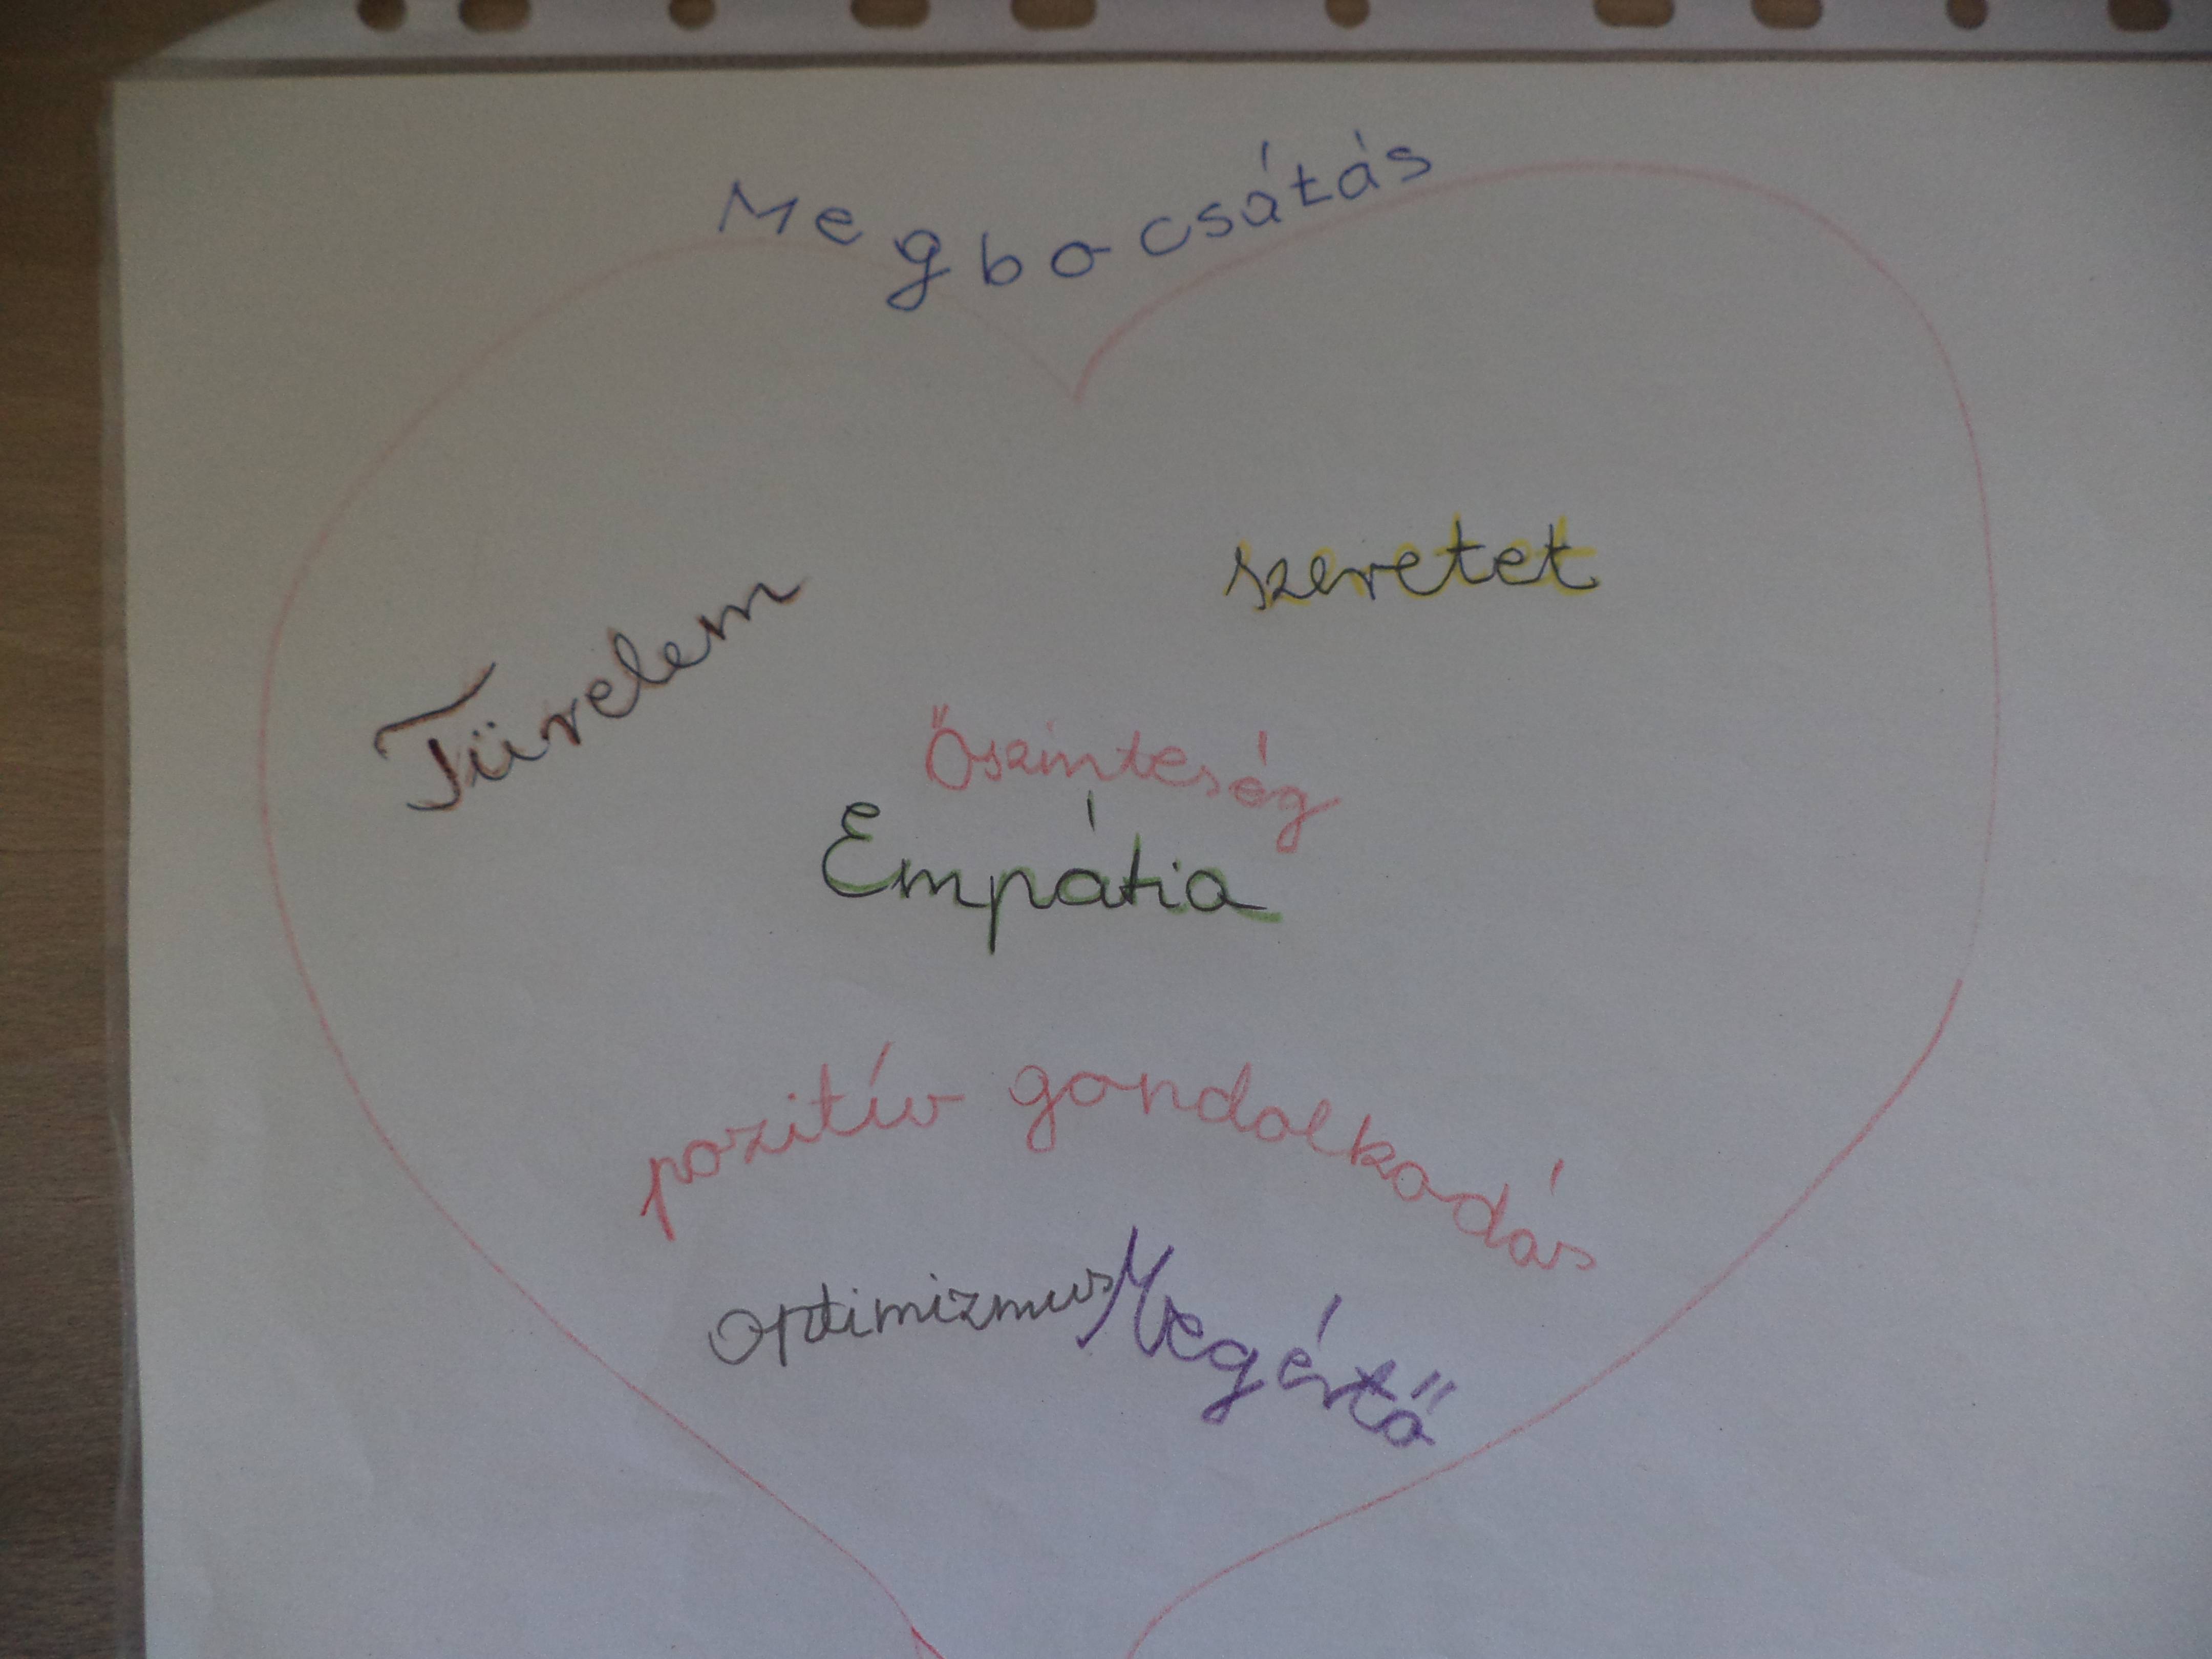 Megbocsátás
szeretet
Türelem
Őszinteség
Empátia
pozitív gondolkodás
optimizmus
Megértő